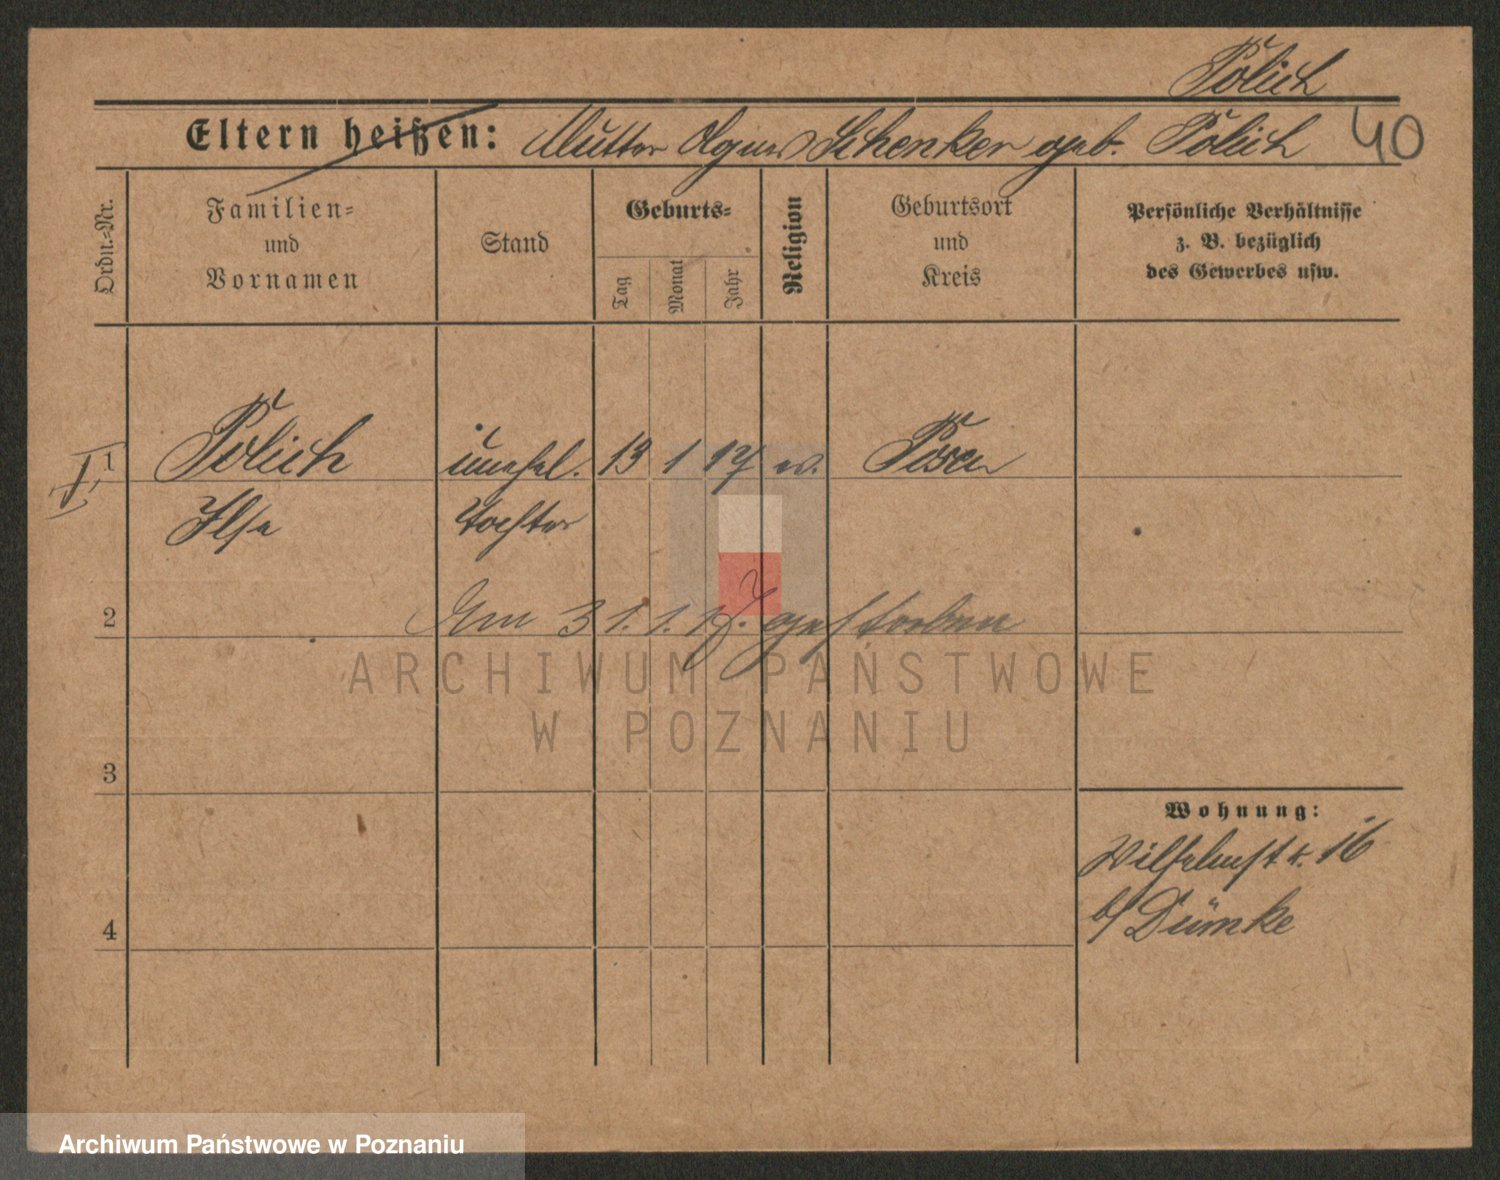 Polich
Eltern heißen: Mutter Agnes Schenker geb. Polich
40
Ordn.-Nr.
Familien-
und
Vornamen
Stand
Geburts-
Tag
Monat
Jahr
Religion
Geburtsort
und
Kreis
Persönliche Verhältnisse
z. B. bezüglich
des Gewerbes usw.
1 Polich unehel. 13 1 17 ev. Posen
Ilse Tochter
2
Am 31. 1. 17. gestorben
ARCHIWUM PAŃSTWOWE
W POZNANIU
3
Wohnung:
Wilhelmstr. 16
b/ Dümke
4
Archiwum Państwowe w Poznaniu